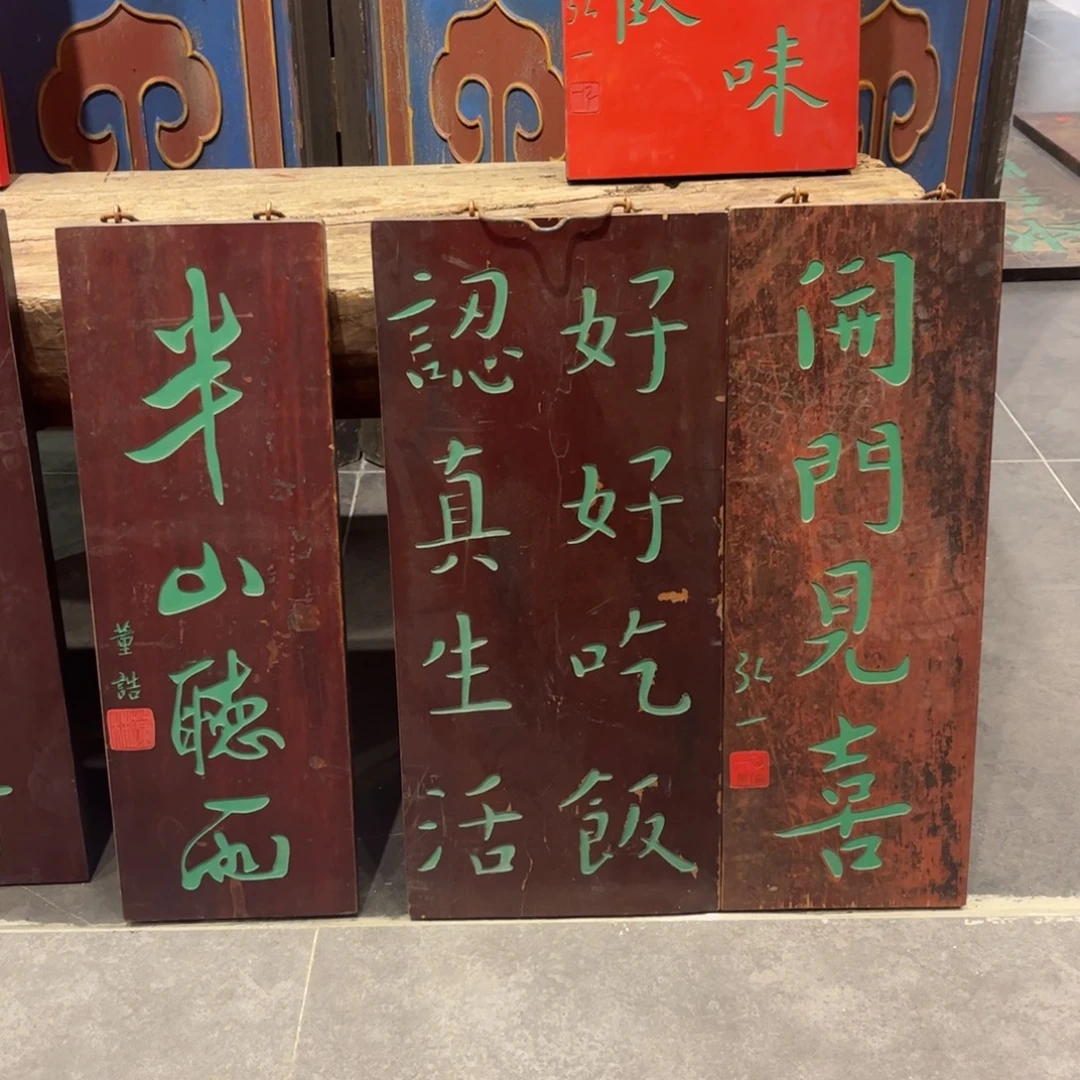 味
弘一
開門見喜
弘一
好好吃飯
認真生活
半山聽雨
董誥